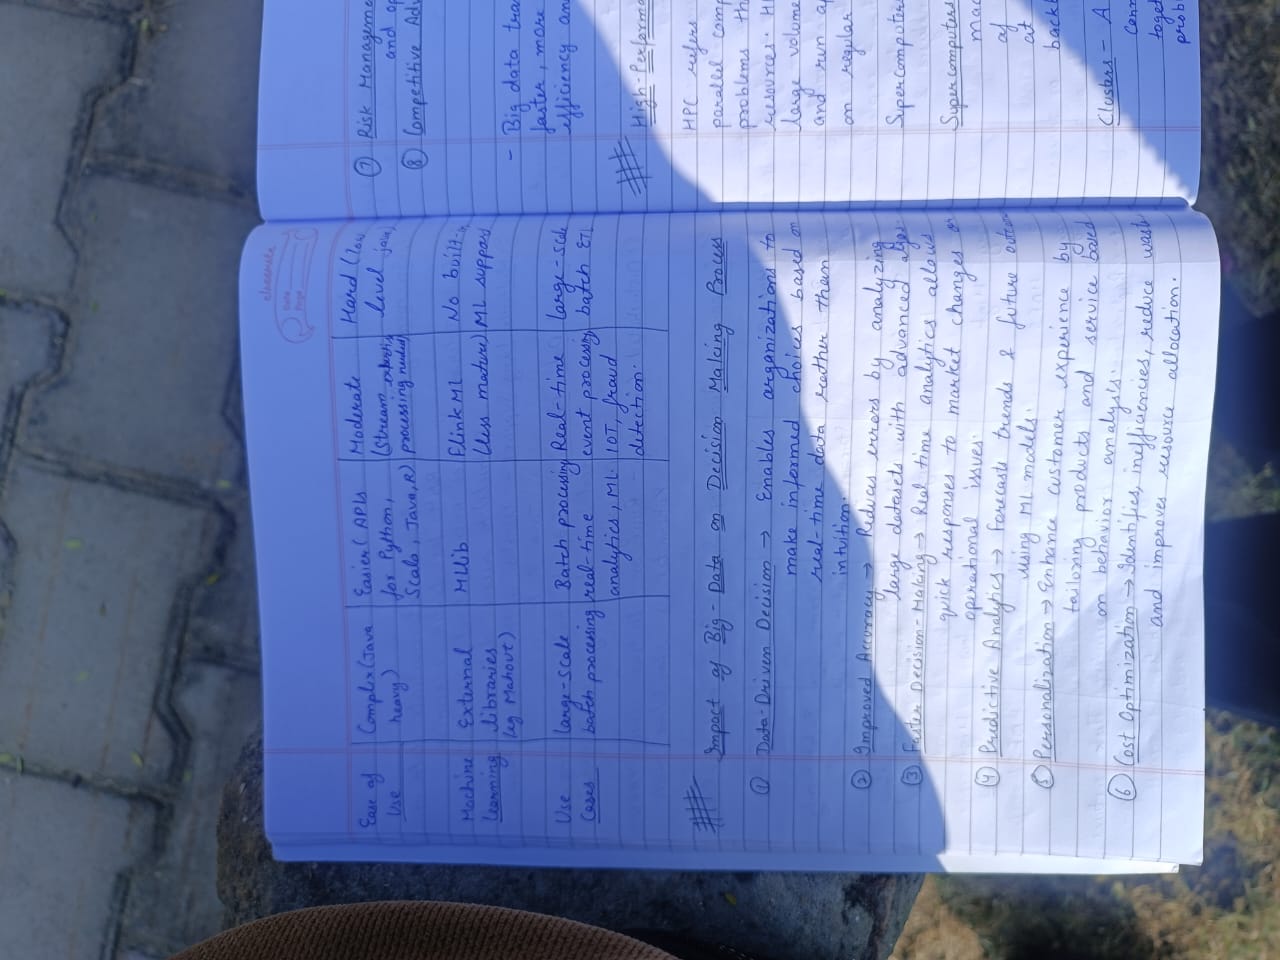 classmate
Date
Page
Ease of Use | Complex (Java heavy) | Easier (APIs for Python, Scala, Java, R) | Moderate (Stream processing expertis needed) | Hard (low level java)
Machine Learning | External libraries (eg Mahout) | MLlib | FlinkML (less mature) | No built-in ML support
Use Cases | large-scale batch processing | Batch processing real-time analytics, ML. | Real-time event processing IOT, fraud detection. | large-scale batch ETL
Impact of Big-Data on Decision Making Process
① Data-Driven Decision → Enables organizations to
make informed choices based on
real-time data reather than
intuition.
② Improved Accuracy → Reduces errors by analyzing
large datasets with advanced algos.
③ Faster Decision-Making → Real time analytics allows
quick responses to market changes or
operational issues.
④ Predictive Analytics → Forecasts trends & future outcom
using ML models.
⑤ Personalization → Enhance customer experience by
tailoring products and service based
on behavior analysis.
⑥ Cost Optimization → Identifies, inefficiencies, reduce waste
and improves resource allocation.
⑦ Risk Manageme
and op
⑧ Competitive Adv
- Big data tra
faster, more
efficiency an
High-Performa
HPC refers
parallel comp
problems th
resources. H
large volume
and run ap
on regular
Supercomputers
Supercomputers
mac
of
at
backb
Clusters - A
conn
toget
prob